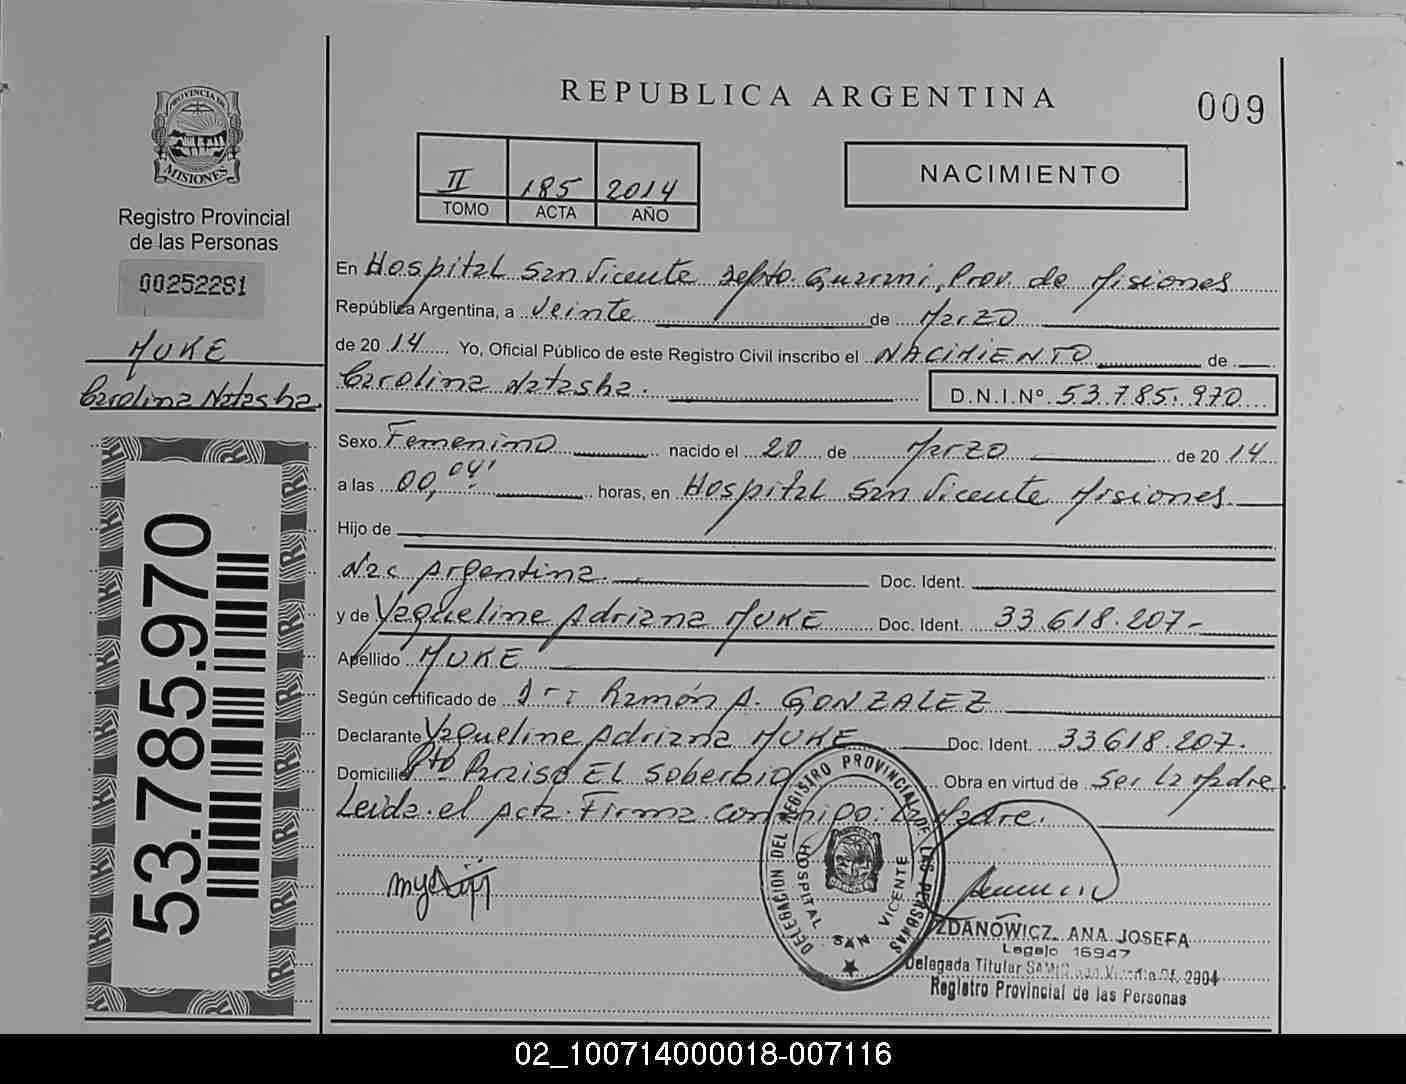 REPUBLICA ARGENTINA
009
PROVINCIA DE
MISIONES
Registro Provincial
de las Personas
00252281
MUKE
Carolina Natasha.
53.785.970
II 185 2014
TOMO ACTA AÑO
NACIMIENTO
En Hospital San Vicente Depto. Guarani, Prov. de Misiones
República Argentina, a Veinte de Marzo
de 2014 Yo, Oficial Público de este Registro Civil inscribo el NACIMIENTO de
Carolina Natasha. D.N.I.Nº 53.785.970
Sexo Femenino nacido el 20 de Marzo de 2014
a las 00,04' horas, en Hospital San Vicente Misiones
Hijo de
Nac Argentina. Doc. Ident.
y de Yaqueline Adriana MUKE Doc. Ident. 33.618.207-
Apellido MUKE
Según certificado de Ramón A. GONZALEZ
Declarante Yaqueline Adriana MUKE Doc. Ident. 33618.207.
Domicilio Pto Paraiso El Soberbio Obra en virtud de Ser la Madre
Leida el Acta. Firma conmigo: la Madre.
DELEGACION DEL REGISTRO PROVINCIAL DE LAS PERSONAS
HOSPITAL SAN VICENTE
ZDANOWICZ ANA JOSEFA
Legajo 16947
Delegada Titular
Registro Provincial de las Personas
02_100714000018-007116